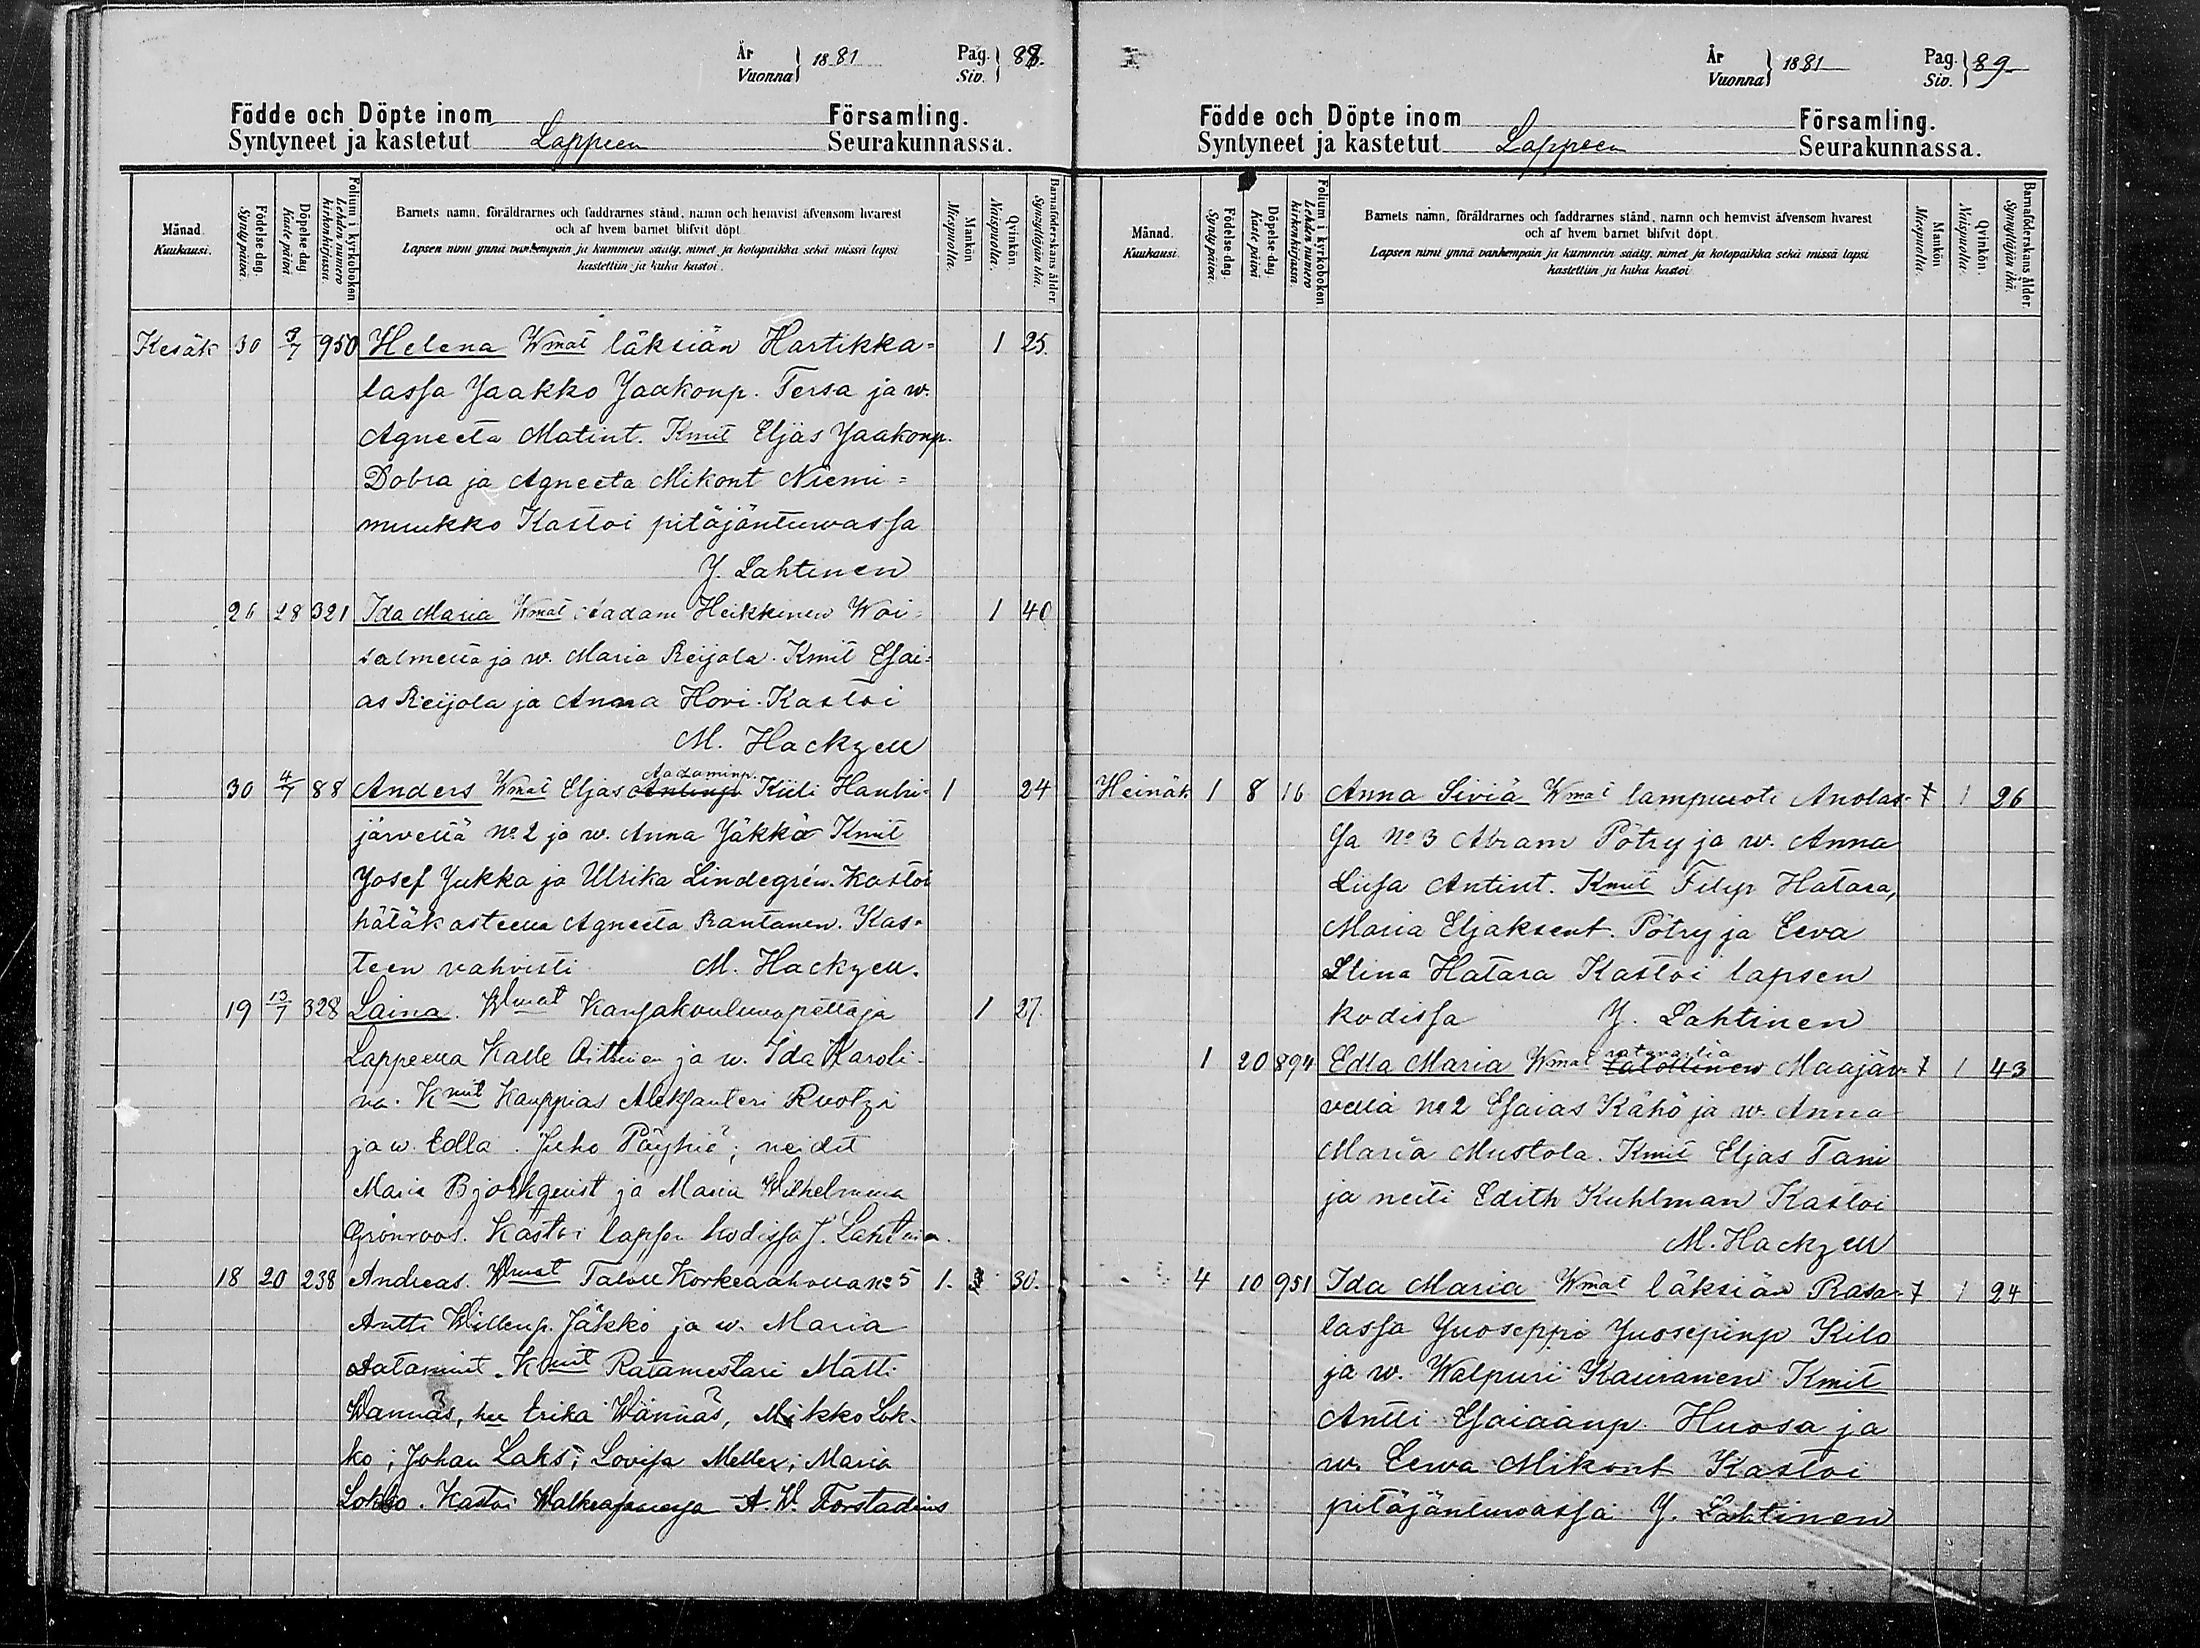 År
Vuonna } 1881 Pag.
Siv. } 88.
Födde och Döpte inom Församling.
Syntyneet ja kastetut Lappeen Seurakunnassa.
Månad. Kuukausi.
Födelse-dag. Synty päivä.
Döpelse-dag. Kaste päivä.
Folium i kyrkoboken Lehden numero kirkonkirjassa.
Barnets namn, föräldrarnes och faddrarnes stånd, namn och hemvist äfvensom hvarest
och af hvem barnet blifvit döpt.
Lapsen nimi ynnä vanhempain ja kummein sääty, nimet ja kotopaikka sekä missä lapsi
kastettiin ja kuka kastoi.
Mankön Miespuolia.
Qvinkön. Naispuolia.
Barnaföderskans ålder Synnyttäjän ikä.
Kesäk 30 3/7 950 Helena Wmat läksiän Hartikka= 1 25.
lassa Jaakko Jaakonp. Tersa ja w.
Agneeta Matint. Kmit Eljas Jaakonp.
Dobra ja Agneeta Mikont Niemi=
muukko Kastoi pitäjäntuwassa
J. Lahtinen
26 28 321 Ida Maria Wmat Aadam Heikkinen Woi= 1 40
salmella ja w. Maria Reijola. Kmit Esai=
as Reijola ja Anna Hovi. Kastoi
M. Hackzell
Aadaminp.
30 4/7 88 Anders Wmat Eljas Antinp Kiili Hanhi= 1 24
järvellä No 2 ja w. Anna Jäkkö Kmit
Josef Jukka ja Ulrika Lindegrén. Kastoi
hätäkasteella Agneeta Rantanen. Kas=
teen vahvisti M. Hackzell.
19 13/7 328 Laina. Wmat Kansakoulunopettaja 1 27.
Lappeella Kalle Aittinen ja w. Ida Karoli-
na. Kmit Kauppias Aleksanteri Ruotzi
ja w. Edla. Juho Päyhiö; neidit
Maria Björkqvist ja Maria Wilhelmina
Grönroos. Kastoi lapsen kodissa J. Lahtinen.
18 20 238 Andreas. Wmat Taloll Korkeaaholla No 5 1. 30.
Antti Willenp. Jäkkö ja w. Maria
Aatamint. Kmit Ratamestari Matti
Wännäs, Erika Wännäs, Mikko Lok-
ko; Johan Laks; Lovisa Meller; Maria
Lokko. Kastoi A. W. Forstadius
År
Vuonna } 1881 Pag.
Siv. } 89
Födde och Döpte inom Församling.
Syntyneet ja kastetut Lappeen Seurakunnassa.
Månad. Kuukausi.
Födelse-dag. Synty päivä.
Döpelse-dag. Kaste päivä
Folium i kyrkoboken Lehden numero kirkonkirjassa.
Barnets namn, föräldrarnes och faddrarnes stånd, namn och hemvist äfvensom hvarest
och af hvem barnet blifvit döpt.
Lapsen nimi ynnä vanhempain ja kummein sääty, nimet ja kotopaikka sekä missä lapsi
kastettiin ja kuka kastoi
Mankön Miespuolia.
Qvinkön. Naispuolia.
Barnaföderskans ålder. Synnyttäjän ikä.
Heinäk 1 8 16 Anna Siviä Wmat lampuoti Anolas- † 1 26
sa No 3 Abram Pötry ja w. Anna
Liisa Antint. Kmit Filip Hatara,
Maria Eljaksent. Pötry ja Eeva
Stina Hatara Kastoi lapsen
kodissa J. Lahtinen
ratavartia
1 20 894 Edla Maria Wmat talollinen Maajär- † 1 43
vellä No 2 Esaias Kähö ja w. Anna
Maria Mustola. Kmit Eljas Tani
ja neiti Edith Kuhlman Kastoi
M. Hackzell
4 10 951 Ida Maria Wmat läksiän Rasa- † 1 24
lassa Juoseppi Juosepinp Kilo
ja w. Walpuri Kauranen Kmit
Antti Esaiaanp. Huosa ja
w. Eewa Mikont Kastoi
pitäjäntuwassa J. Lahtinen